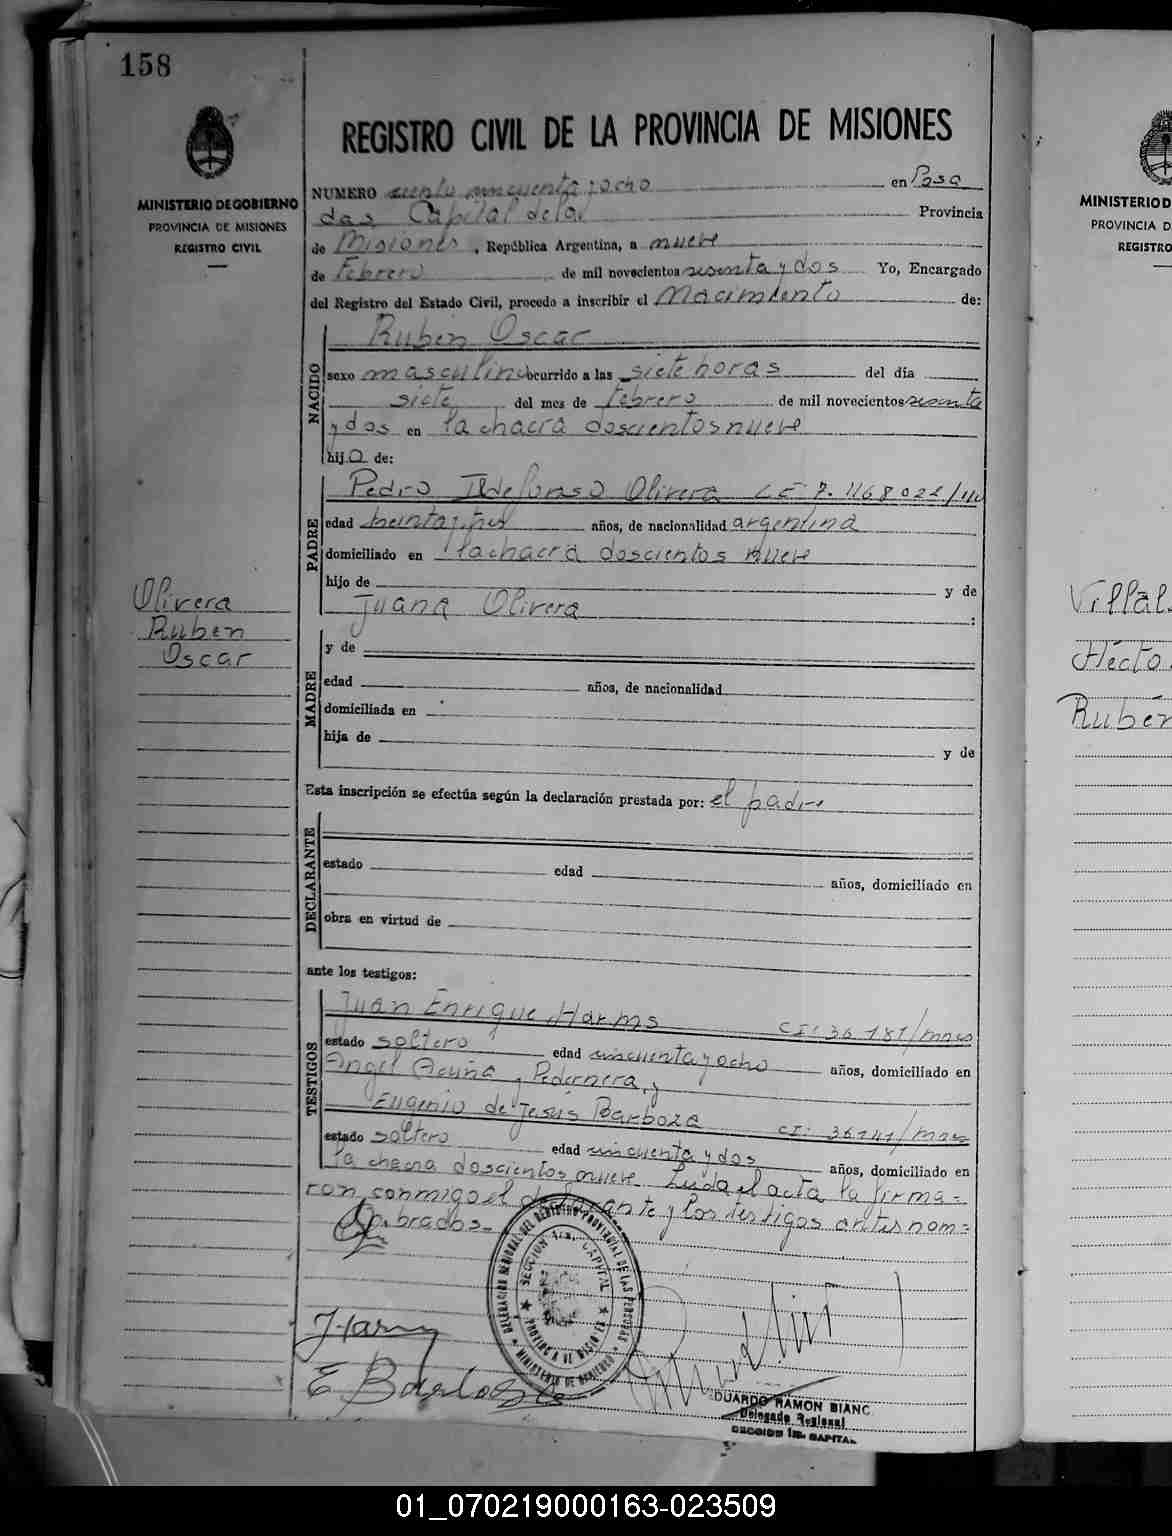 158
REGISTRO CIVIL DE LA PROVINCIA DE MISIONES
MINISTERIO DE GOBIERNO
PROVINCIA DE MISIONES
REGISTRO CIVIL
NUMERO ciento cincuenta y ocho en Posa
das Capital de la Provincia
de Misiones, República Argentina, a nueve
de Febrero de mil novecientos sesenta y dos Yo, Encargado
del Registro del Estado Civil, procedo a inscribir el Nacimiento de:
NACIDO
Rubén Oscar
sexo masculino ocurrido a las siete horas del día
siete del mes de febrero de mil novecientos sesenta
y dos en la chacra doscientos nueve
hijo de:
PADRE
Pedro Ildefonso Olivera
edad treinta y tres años, de nacionalidad argentina
domiciliado en la chacra doscientos nueve
hijo de y de
Juana Olivera :
Olivera
Ruben
Oscar
MADRE
y de
edad años, de nacionalidad
domiciliada en
hija de y de
Esta inscripción se efectúa según la declaración prestada por: el padre
DECLARANTE
estado edad años, domiciliado en
obra en virtud de
ante los testigos:
TESTIGOS
Juan Enrique Harms CI: 36.181/mnes
estado soltero edad cincuenta y ocho años, domiciliado en
Angel Acuña y Pedernera, y
Eugenio de Jesús Barboza CI: 36241/mnes
estado soltero edad cincuenta y dos años, domiciliado en
la chacra doscientos nueve. Leída el acta la firma=
ron conmigo el declarante y los testigos antes nom=
brados.-
SECCION 1ra. CAPITAL
PROVINCIA DE MISIONES
MINISTERIO DE GOBIERNO
Harms
E Barboza
EDUARDO RAMON BIANC
Delegado Regional
SECCION 1ra. CAPITAL
MINISTERIO D
PROVINCIA D
REGISTRO
Villal
Hécto
Rubén
01_070219000163-023509